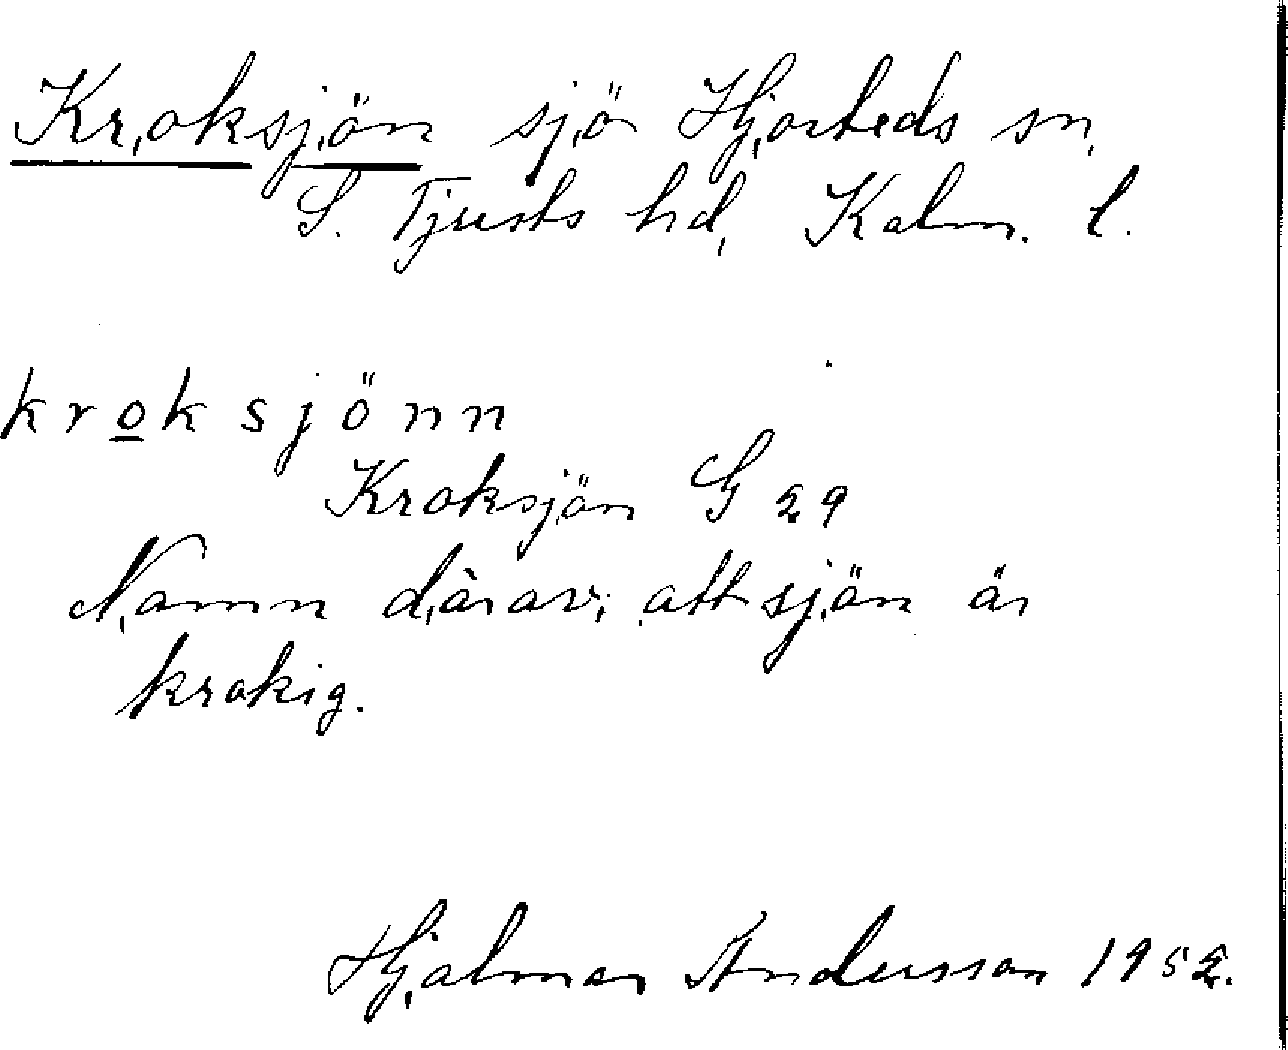 Kroksjön sjö Hjorteds sn,
S. Tjusts hd, Kalm. l.
kroksjönn
Kroksjön G 29
Namn därav, att sjön är
krokig.
Hjalmar Andersson 1952.